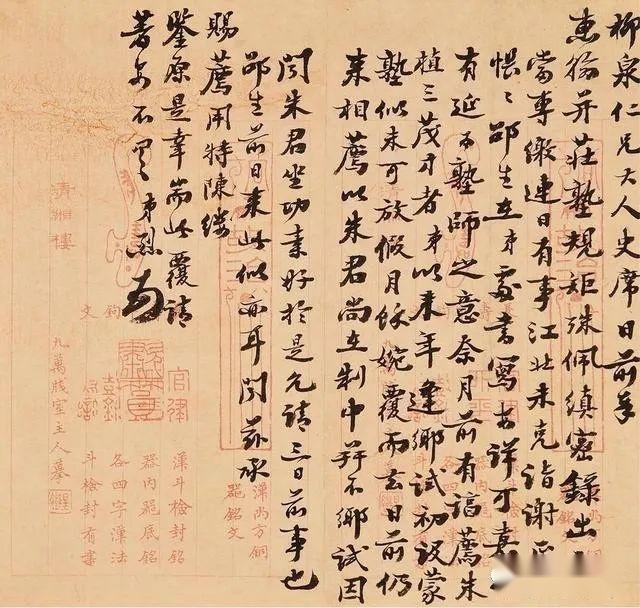 柳泉仁兄大人史席日前奉
惠緘并莊塾規矩殊佩縝密錄出
當專繳連日有事江北未克詣謝
悵〻邵生在弟處書寫安詳可喜
有延為塾師之意奈月前有諄薦朱
植三茂才者弟以来年逢鄉試初設蒙
塾似未可放假月餘婉覆而去日前仍
来相薦以朱君尚在制中并不鄉試因
聞朱君坐功素好於是允請三日前事也
邵生前日来此似亦耳聞茲承
賜薦用特陳縷
鑒原是幸耑此覆請
著安不具 弟烈
漢尚方銅
器銘文
官律
漢斗檢封銘
器內龍底銘
各四字漢法
斗檢封有案
九萬牋室主人摹
清湘樓